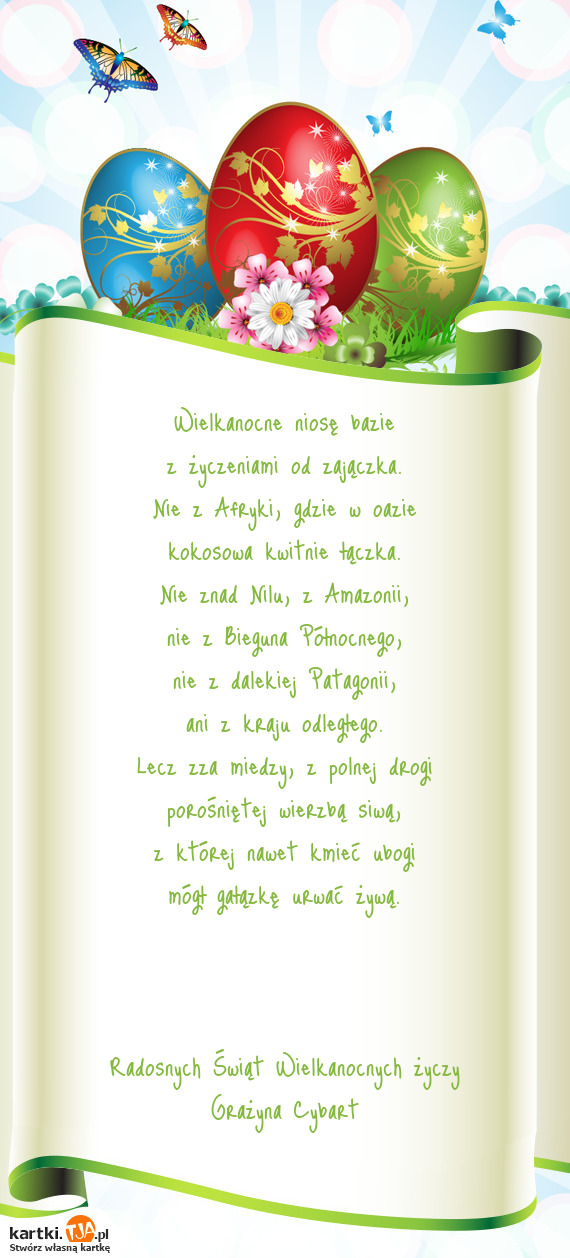 Wielkanocne niosę bazie
z życzeniami od zajączka.
Nie z Afryki, gdzie w oazie
kokosowa kwitnie łączka.
Nie znad Nilu, z Amazonii,
nie z Bieguna Północnego,
nie z dalekiej Patagonii,
ani z kraju odległego.
Lecz zza miedzy, z polnej drogi
porośniętej wierzbą siwą,
z której nawet kmieć ubogi
mógł gałązkę urwać żywą.
Radosnych Świąt Wielkanocnych życzy
Grażyna Cybart
kartki.TJA.pl
Stwórz własną kartkę